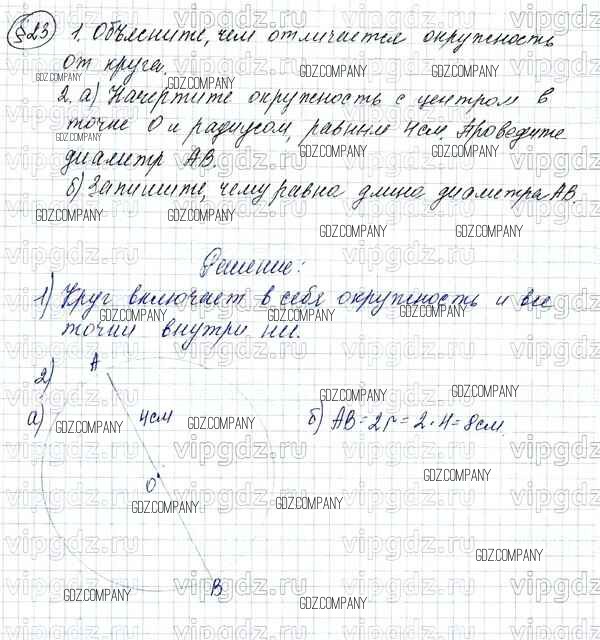 §23 1. Объясните, чем отличается окружность
от круга.
2. а) Начертите окружность с центром в
точке О и радиусом, равным 4см. Проведите
диаметр АВ.
б) Запишите, чему равна длина диаметра АВ.
Решение:
1) Круг включает в себя окружность и все
точки внутри неё.
2)
А
а)
4см
б) АВ = 2r = 2 · 4 = 8см.
О
В
GDZ.COMPANY
vipgdz.ru